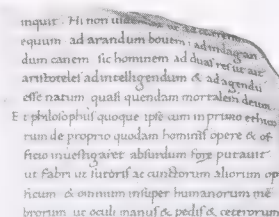 inquit. Hi non
equum ad arandum bouem: ad indagan
dum canem sic hominem ad duas res ut ait
aristoteles ad intelligendum & ad agendū
esse natum quasi quendam mortalem deum
Et philosophus quoque ipse cum in primo ethico
rum de proprio quodam hominis opere & of
ficio inuestigaret absurdum fore putauit
ut fabri ut sutoris ac cunctorum aliorum op
ificum & omnium insuper humanorum mē
brorum ut oculi manus & pedis & ceterorum